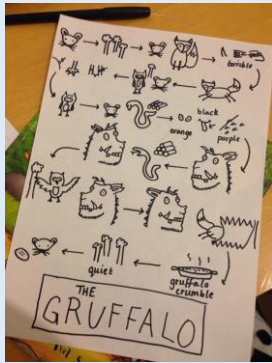 terrible
black
orange
purple
quiet
gruffalo
crumble
THE
GRUFFALO